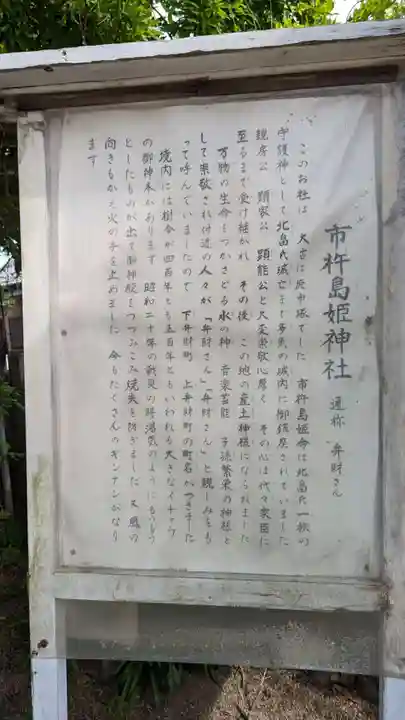 市杵島姫神社 通称 弁財さん
このお社は 大古は庭中塚でした 市杵島姫命は北畠氏一族の
守護神として北畠氏滅亡まで多気の城内に御鎮座されていました
親房公 顕家公 顕能公と大変崇敬心厚く その心は代々家臣に
至るまで受け継がれ その後 この地の産土神様になられました
万物の生命をつかさどる水の神 音楽芸能 子孫繁栄の神様と
して崇敬され付近の人々が「弁財さん」「弁財さん」と親しみをも
って呼んでいましたので 下弁財町 上弁財町の町名がつきました
境内には樹令が四百年とも五百年ともいわれる大きなイチョウ
の御神木があります 昭和二十年の戦災の時湯気のようにもうもう
としたものが出て御神殿をつつみこみ焼失を防ぎました 又風の
向きもかえ火の手を止めました 今もたくさんのギンナンがなり
ます